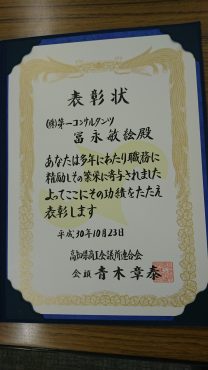 表彰状
(株)第一コンサルタンツ
冨永敏絵殿
あなたは多年にわたり職務に
精励しその業界に寄与されました
よってここにその功績をたたえ
表彰します
平成30年10月23日
高知県商工会議所連合会
会頭 青木章泰